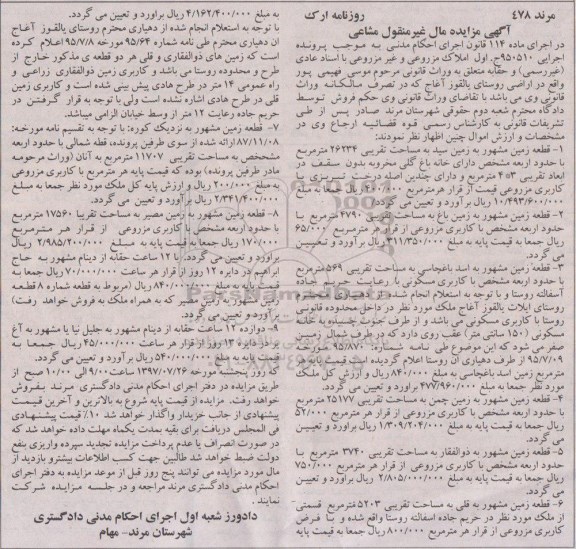 مرند ٤٧٨
روزنامه ارک
آگهی مزایده مال غیرمنقول مشاعی
در اجرای ماده ۱۱۴ قانون اجرای احکام مدنی به موجب پرونده
اجرایی ۹۵۰۵۱۰ح. اول املاک مزروعی و غیر مزروعی با اسناد عادی
(غیررسمی) و حقابه متعلق به وراث قانونی مرحوم موسی فهیمی پور
واقع در اراضی روستای یالقوز آغاج که در تصرف مالکانه وراث
قانونی وی می باشد با تقاضای وراث قانونی وی حکم فروش توسط
دادگاه محترم شعبه دوم حقوقی شهرستان مرند صادر پس از طی
تشریفات قانونی به کارشناس رسمی قوه قضائیه ارجاع وی در
مشخصات و ارزش اموال چنین اظهار نظر نمودند:
۱- قطعه زمین مشهور به زمین سید به مساحت تقریبی ۲۶۲۳۴ مترمربع
با حدود اربعه مشخص دارای خانه باغ گلی مخروبه بدون سقف در
ابعاد تقریبی ۳*۴ مترمربع و دارای چندین اصله درخت تبریزی با
کاربری مزروعی قیمت از قرار هرمترمربع ۴۰۰/۰۰۰ ریال جمعا به مبلغ
۱۰/۴۹۳/۶۰۰/۰۰۰ ریال برآورد و تعیین می گردد.
۲- قطعه زمین مشهور به زمین باغ به مساحت تقریبی ۴۷۹۰ مترمربع با
حدود اربعه مشخص با کاربری مزروعی از قرار هر مترمربع ۶۵/۰۰۰
ریال جمعا قیمت پایه به مبلغ ۳۱۱/۳۵۰/۰۰۰ ریال برآورد و تعیین
می گردد.
۳- قطعه زمین مشهور به اسد باغجاسی به مساحت تقریبی ۵۶۹ مترمربع
با حدود اربعه مشخص با کاربری مسکونی با رعایت حریم جاده
آسفالته روستا و با توجه به استعلام انجام شده از دهیاری محترم
روستای ایلات یالقوز آغاج ملک مورد نظر در داخل محدوده قانونی
روستا با کاربری مسکونی می باشد و از طرف جنوب چسبیده به خانه
مسکونی (۱۵۰ سانتی متر) عقب روی دارد که در طرف شمال زمین
صفر می شود که این موضوع طی نامه شماره: ۹۵/۸۷۰ مورخه:
۹۵/۷/۰۹ از طرف دهیاری آن روستا اعلام گردیده است قیمت پایه هر
مترمربع زمین اسد باغجاسی به مبلغ ۸۴۰/۰۰۰ ریال و ارزش کل ملک
مورد نظر جمعا به مبلغ ۴۷۷/۹۶۰/۰۰۰ برآورد و تعیین می گردد.
۴- قطعه زمین مشهور به زمین چمن به مساحت تقریبی ۲۵۱۷۷ مترمربع
با حدود اربعه مشخص با کاربری مزروعی از قرار هر مترمربع ۵۲/۰۰۰
ریال جمعا قیمت پایه به مبلغ ۱/۳۰۹/۲۰۴/۰۰۰ ریال برآورد و تعیین
می گردد.
۵- قطعه زمین مشهور به ذوالفقار به مساحت تقریبی ۳۷۴۰ مترمربع با
حدود اربعه مشخص با کاربری مزروعی از قرار هر مترمربع ۷۵۰/۰۰۰
ریال جمعا قیمت پایه به مبلغ ۲/۸۰۵/۰۰۰/۰۰۰ ریال برآورد و تعیین
می گردد.
۶- قطعه زمین مشهور به قلی به مساحت تقریبی ۵۲۰۳ مترمربع قسمتی
از ملک مورد نظر در حریم جاده اسفالته روستا واقع شده و با فرض
کاربری مزروعی از قرار هر مترمربع ۸۰۰/۰۰۰ ریال جمعا به قیمت پایه
به مبلغ ۴/۱۶۲/۴۰۰/۰۰۰ ریال براورد و تعیین می گردد.
با توجه به استعلام انجام شده از دهیاری محترم روستای یالقوز آغاج
ان دهیاری محترم طی نامه شماره ۹۵/۶۴ مورخه ۹۵/۷/۸ اعلام کرده
است که زمین های ذوالفقاری و قلی هر دو قطعه ی مذکور خارج از
طرح و محدوده روستا می باشد و کاربری زمین ذوالفقاری زراعی و
راه عمومی ۱۴ متر در طرح هادی پیش بینی شده است و کاربری زمین
قلی در طرح هادی اشاره نشده است ولی با توجه به قرار گرفتن در
حریم جاده رعایت ۱۲ متر از وسط خیابان الزامی میباشد.
۷- قطعه زمین مشهور به نزدیک کوره: با توجه به تقسیم نامه مورخه:
۸۷/۱۱/۰۸ ارائه شده از سوی طرفین پرونده، قطه شمالی با حدود اربعه
مشخص به مساحت تقریبی ۱۱۷۰۷ مترمربع به آنان (وراث مرحومه
مادر طرفین پرونده) بوده که قیمت پایه هر مترمربع با کاربری مزروعی
به مبلغ ۲۰۰/۰۰۰ ریال و ارزش پایه کل ملک مورد نظر جمعا به مبلغ
۲/۳۴۱/۴۰۰/۰۰۰ ریال برآورد و تعیین می گردد.
۸- قطعه زمین مشهور به زمین مصیر به مساحت تقریبا ۱۷۵۶۰ مترمربع
با حدود اربعه مشخص با کاربری مزروعی از قرار هر مترمربع
۱۷۰/۰۰۰ ریال جمعا به قیمت پایه به مبلغ ۲/۹۸۵/۲۰۰/۰۰۰ ریال
براورد و تعیین می گردد. با ۱۲ ساعت حقابه از دینام مشهور به حاج
ابراهیم در دایره ۱۲ روز از قرار هر ساعت ۷۰/۰۰۰/۰۰۰ ریال جمعا به
قیمت پایه به مبلغ ۸۴۰/۰۰۰/۰۰۰ ریال (مربوط به قطعه شماره ۸ قطعه
زمین مشهور به زمین مصیر که به همراه ملک به فروش خواهد رفت)
برآورد و تعیین می گردد.
۹- دوازده ۱۲ ساعت حقابه از دینام مشهور به جلیل نیا یا مشهور به آغ
یر در دایره ۱۳ روز از قرار هر ساعت ۴۵/۰۰۰/۰۰۰ ریال جمعا به
قیمت پایه به مبلغ ۵۴۰/۰۰۰/۰۰۰ ریال برآورد و تعیین می گردد.
که روز پنجشنبه مورخه ۱۳۹۷/۰۷/۲۶ ساعت ۹/۰۰ الی ۱۰/۰۰ صبح از
طریق مزایده در دفتر اجرای احکام مدنی دادگستری مرند بفروش
خواهد رفت. مزایده از قیمت پایه شروع به بالاترین و آخرین قیمت
پیشنهادی از جانب خریدار واگذار خواهد شد ۱۰٪ قیمت پیشنهادی
فی المجلس دریافت برای بقیه بمدت یکماه مهلت داده خواهد شد که
در صورت انصراف یا عدم پرداخت مزایده تجدید سپرده واریزی بنفع
دولت ضبط خواهد شد طالبین جهت کسب اطلاعات بیشتر و بازدید از
مال مورد مزایده می توانند پنج روز قبل از موعد مزایده به دفتر اجرای
احکام مدنی دادگستری مرند مراجعه و در جلسه مزایده شرکت
نمایند.
دادورز شعبه اول اجرای احکام مدنی دادگستری
شهرستان مرند- مهام